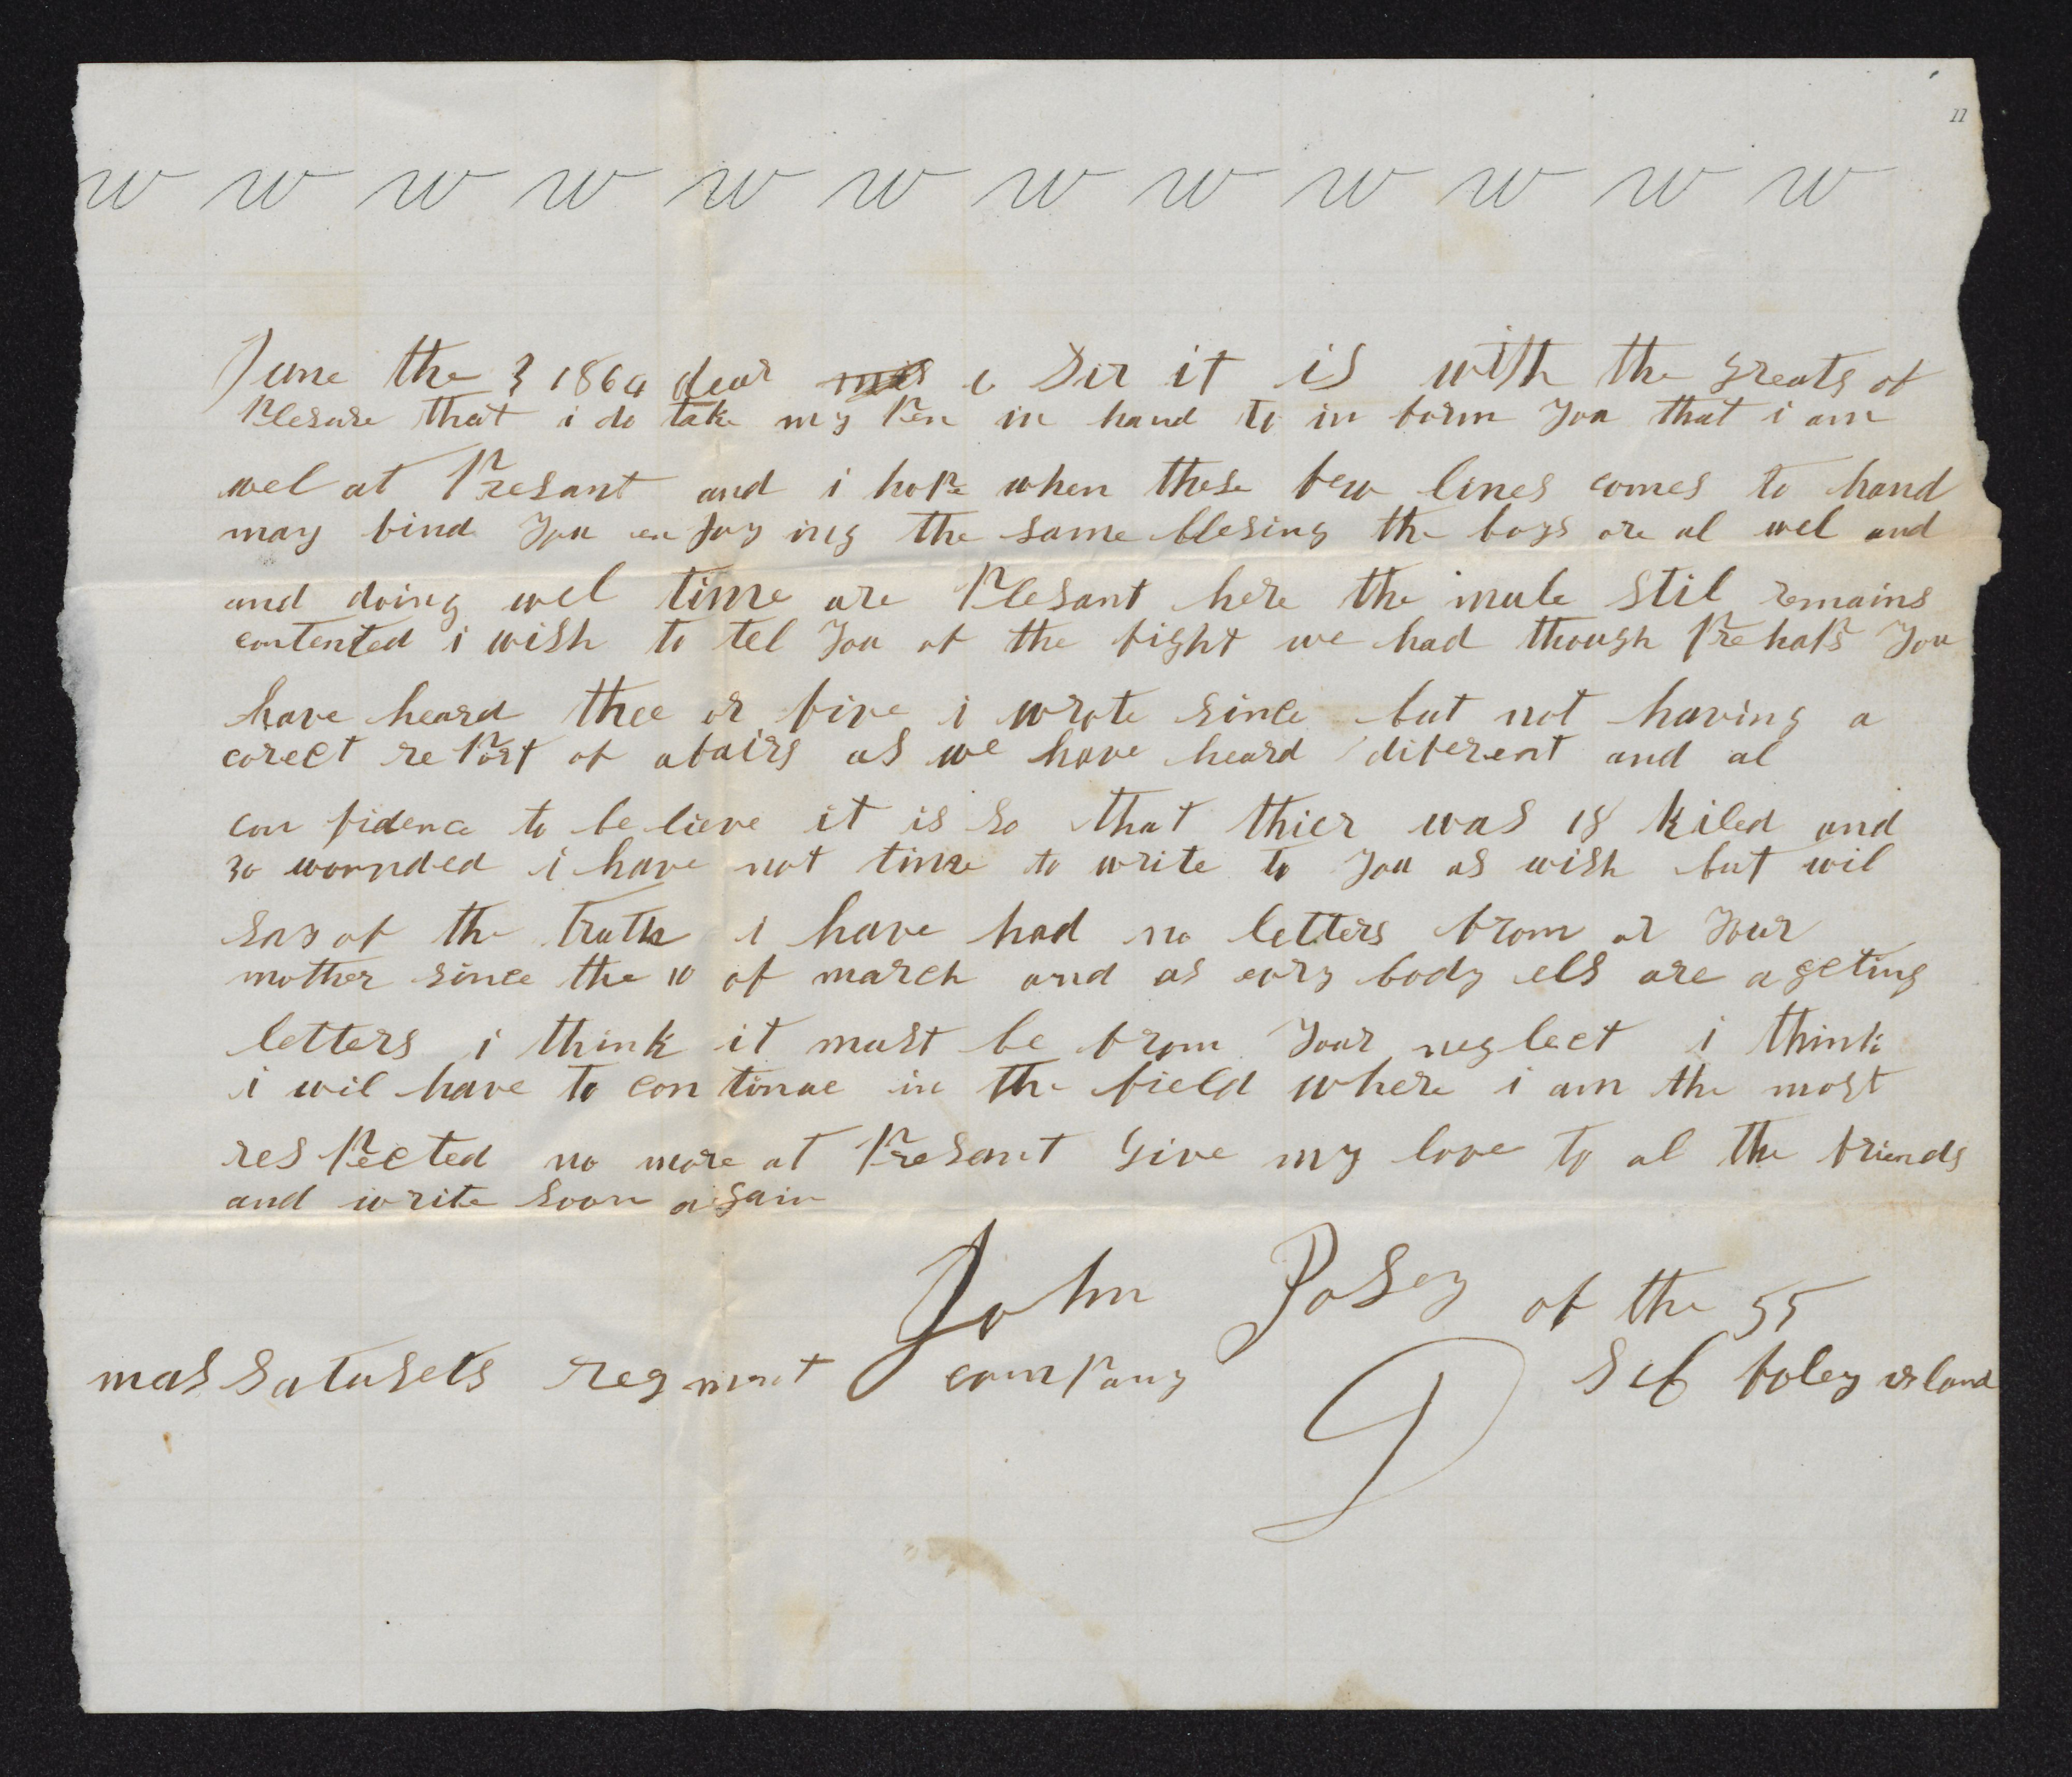 11
w w w w w w w w w w w w
June the 3 1864 dear Sir it is with the greats of
Plesure that i do take my Pen in hand to in form You that i am
wel at Presant and i hope when these few lines comes to hand
may find You en Joy ing the same blesing the boys are al wel and
and doing wel time are Plesant here the mule stil remains
contented i wish to tel You of the fight we had though Prehaps You
have heard thee or five i wrote since but not having a
corect re Port of afairs as we have heard diferent and al
con fidence to be lieve it is so that thier was 18 kiled and
30 wornded i have not time to write to You as wish but wil
say of the truth i have had no letters from or Your
mother since the 10 of march and as evry body els are a geting
letters i think it must be from Your neglect i think
i wil have to con tinue in the field where i am the most
res Pected no more at Presant give my love to al the friends
and write soon again
John Posey of the 55
mas Satusets regment company D S C foley island